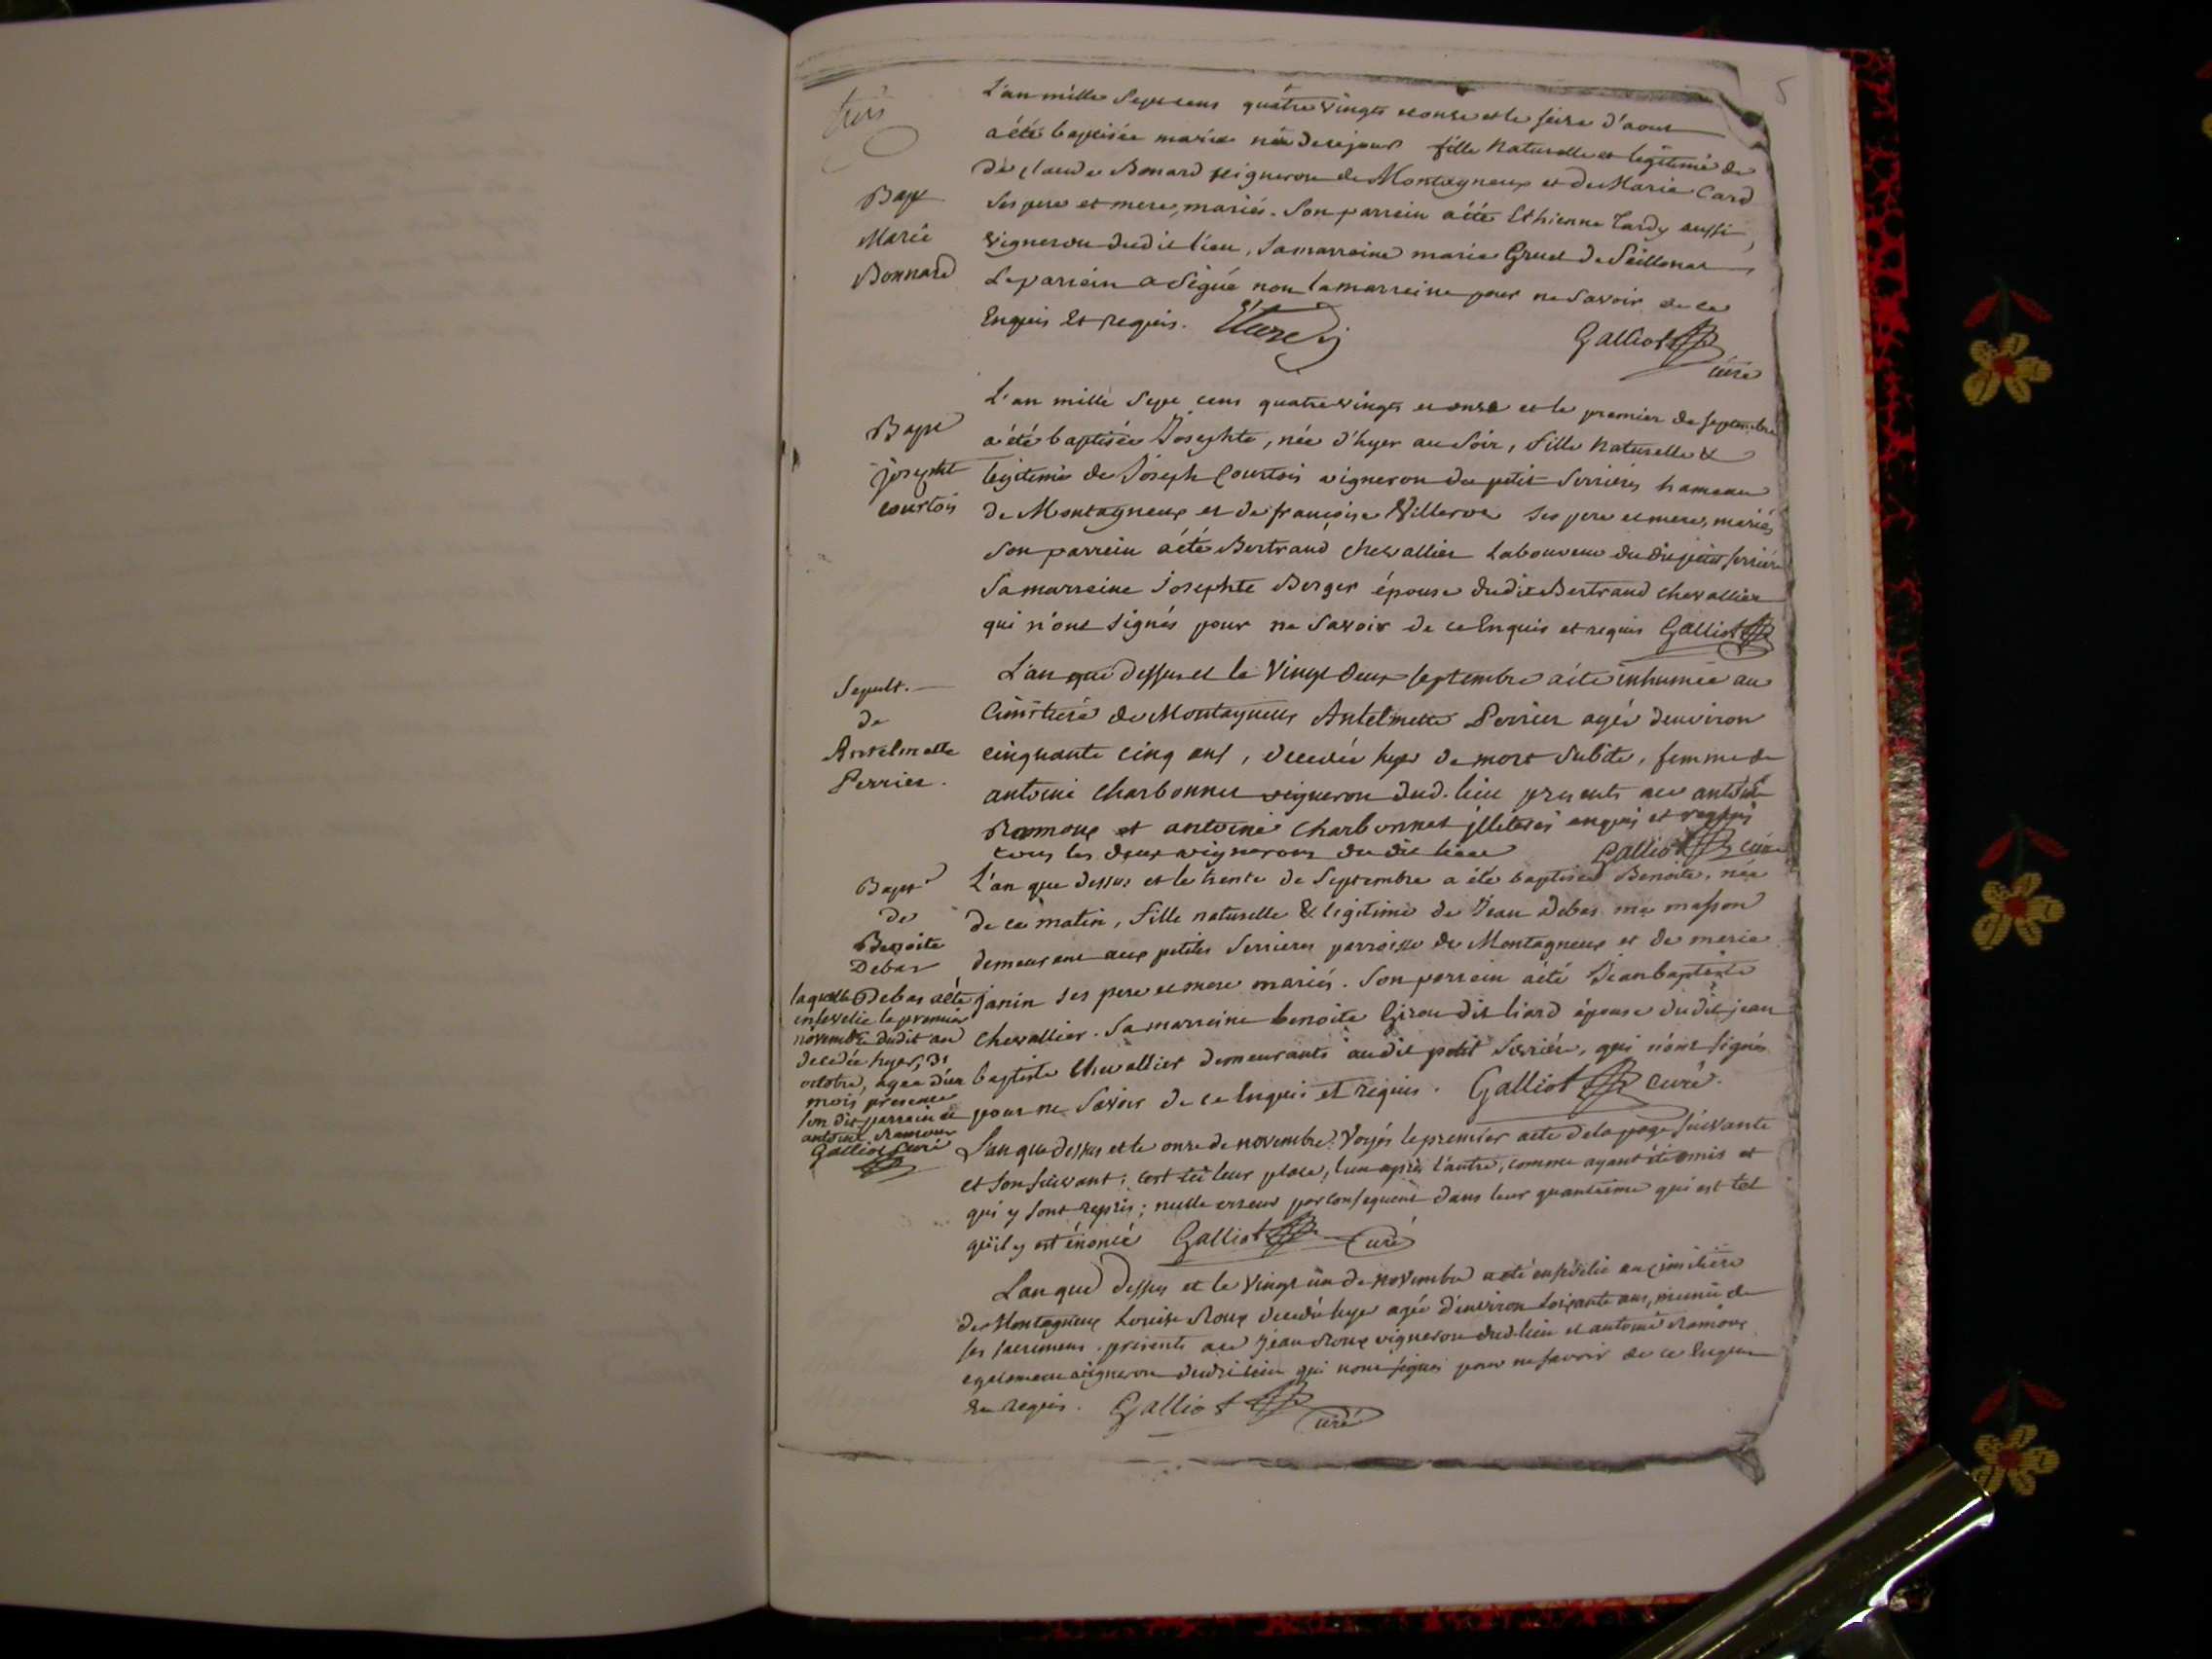 5
trois
L'an mille sept cens quatre vingts et onze et le seize d'aout
a été baptisée marie née de ce jour fille naturelle et legitime de
de claude Bonard vigneron de Montagneux et de Marie Card
Bapt
ses pere et mere, mariés. Son parrein a été Ethienne Tardy aussi
Marie
vigneron dudit lieu, sa marreine marie Gruel de Seillonas
Bonnard
Le parrein a signé non la marreine pour ne savoir de ce
Enquis Et Requis.
Galliot
curé
L'an mille sept cens quatre vingts et onze et le premier de septembre
Bapt
a été baptisée Josephte, née d'hyer au soir, fille naturelle &
josepht
legitime de Joseph Courtois vigneron du petit Serrieres hameau
courtois
de Montagneux et de françoise Villerve ses pere et mere, mariés
son parrein a été Bertrand chevallier Laboureur du dit petit serriere
Sa marreine Josephte Berger épouse dudit Bertrand chevallier
qui n'ont signés pour ne savoir de ce Enquis et requis Galliot
Sepult.
L'an que dessus et le vingt deux septembre a été inhumée au
de
Cimitiere de Montagneux Antelmette Perrier agée d'environ
Antelmette
cinquante cinq ans, decedée hyer de mort subite, femme de
Perrier.
antoine charbonnet vigneron dud. lieu presents ace antoine
Ramoux et antoine charbonnet illeterés enquis et requis
tous les deux vignerons du dit lieu Galliot curé
Bapt
L'an que dessus et le trente de Septembre a été baptisée Benoite, née
de
de ce matin, fille naturelle & legitime de Jean Debas me masson
Benoite
Debas
demeurant aux petites Serrieres parroisse de Montagneux et de marie
janin ses pere et mere mariés. Son parrein a été Jean baptiste
chevallier. Sa marreine benoite Girou dit liard épouse dudit jean
baptiste chevallier demeurants audit petit Serriere, qui n'ont signés
pour ne savoir de ce Enquis et requis. Galliot curé.
laquelle Debas a été
ensevelie le premier
novembre dudit an
decedée hyer, 31
octobre, agée d'un
mois presence
son dit parrein et
antoine Ramoux
Galliot curé
L'an que dessus et le onze de novembre: Voyés le premier acte de la page suivante
et son suivant; c'est ici leur place, l'un après l'autre, comme ayant été omis et
qui y sont repris; nulle erreur par consequent dans leur quantieme qui est tel
qu'il y est énoncé Galliot curé
L'an que dessus et le vingt un de novembre a été ensevelie au cimitiere
de Montagneux Louise Roux decedée hyer agée d'environ soixante ans, munie de
ses sacremens. présents ace Jean Roux vigneron dud. lieu et antoine Ramoux
egalement vigneron dudit lieu qui n'ont signés pour ne savoir de ce Enquis
Et Requis. Galliot curé